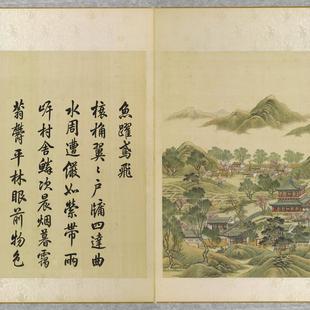 魚躍鳶飛
榱桷翼〻戶牖四達曲
水周遭儼如縈帶兩
岸村舍鱗次晨烟暮靄
蓊鬱平林眼前物色